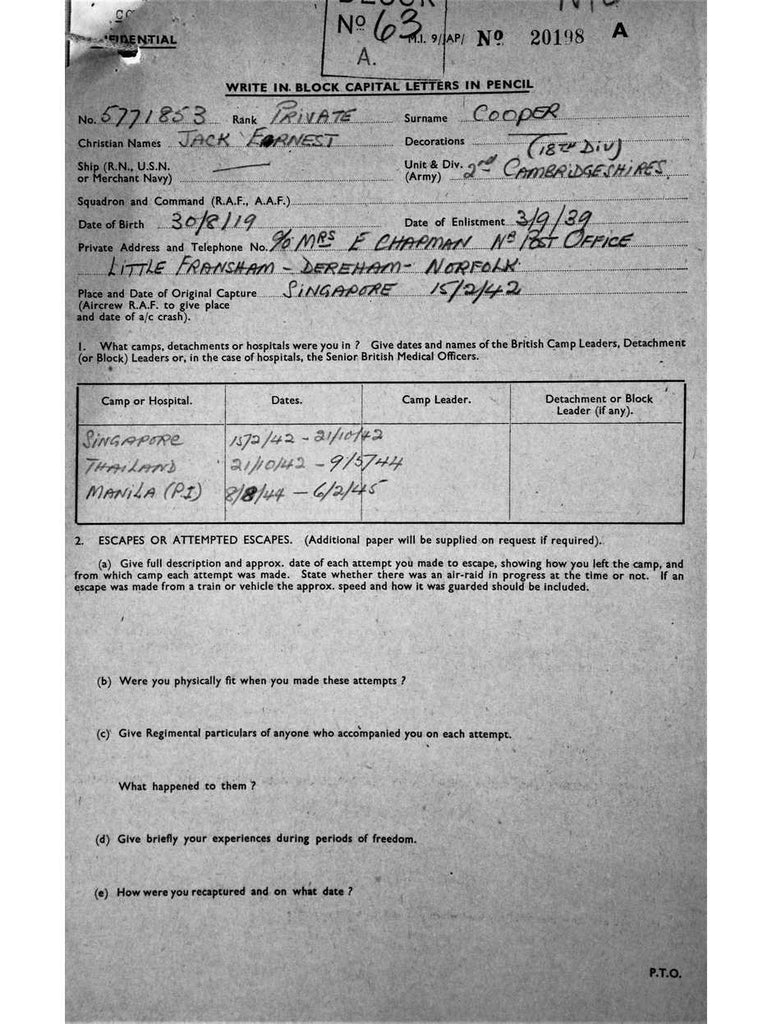 BLOCK
Nº 63
A.
M.I. 9/JAP/ Nº 20198 A
WRITE IN BLOCK CAPITAL LETTERS IN PENCIL
No. 5771853 Rank PRIVATE Surname COOPER
Christian Names JACK EARNEST Decorations
Ship (R.N., U.S.N. or Merchant Navy) —
Unit & Div. (Army) 2nd CAMBRIDGESHIRES (18TH DIV)
Squadron and Command (R.A.F., A.A.F.)
Date of Birth 30/8/19 Date of Enlistment 3/9/39
Private Address and Telephone No. c/o MRS E CHAPMAN NR POST OFFICE
LITTLE FRANSHAM - DEREHAM - NORFOLK
Place and Date of Original Capture SINGAPORE 15/2/42
(Aircrew R.A.F. to give place
and date of a/c crash).
1. What camps, detachments or hospitals were you in ? Give dates and names of the British Camp Leaders, Detachment
(or Block) Leaders or, in the case of hospitals, the Senior British Medical Officers.
Camp or Hospital. Dates. Camp Leader. Detachment or Block
Leader (if any).
SINGAPORE 15/2/42 - 21/10/42
THAILAND 21/10/42 - 9/5/44
MANILA (P.I) 8/8/44 - 6/2/45
2. ESCAPES OR ATTEMPTED ESCAPES. (Additional paper will be supplied on request if required).
(a) Give full description and approx. date of each attempt you made to escape, showing how you left the camp, and
from which camp each attempt was made. State whether there was an air-raid in progress at the time or not. If an
escape was made from a train or vehicle the approx. speed and how it was guarded should be included.
(b) Were you physically fit when you made these attempts ?
(c) Give Regimental particulars of anyone who accompanied you on each attempt.
What happened to them ?
(d) Give briefly your experiences during periods of freedom.
(e) How were you recaptured and on what date ?
P.T.O.